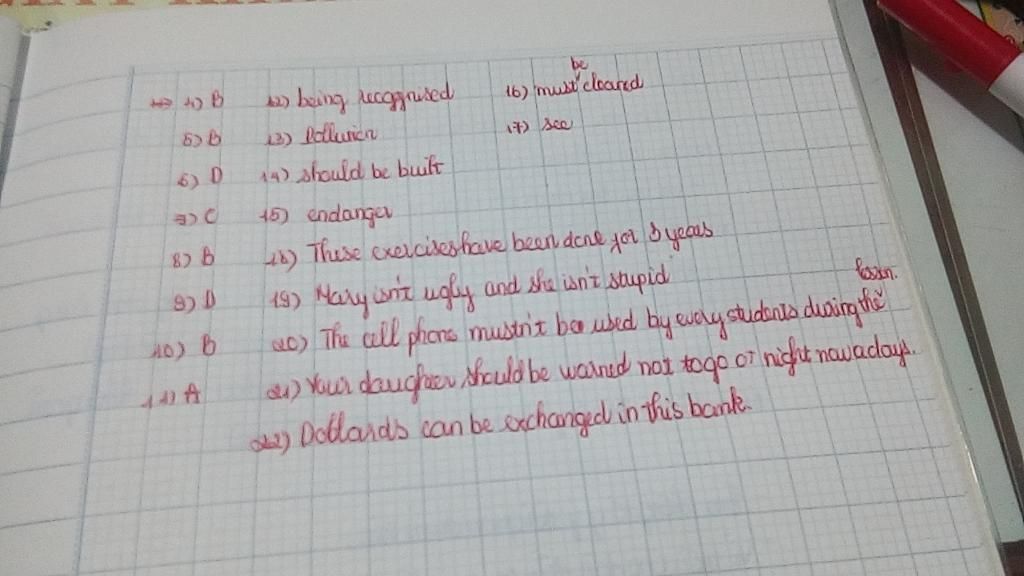 4) B 12) being recognised 16) must be cleared
5) B 13) Pollution 17) see
6) D 14) should be built
7) C 15) endanger
8) B 18) These exercises have been done for 3 years
9) D 19) Mary isn't ugly and she isn't stupid
10) B 20) The cell phone mustn't be used by every students during the lesson.
11) A 21) Your daughter should be warned not to go at night nowadays.
22) Dollards can be exchanged in this bank.